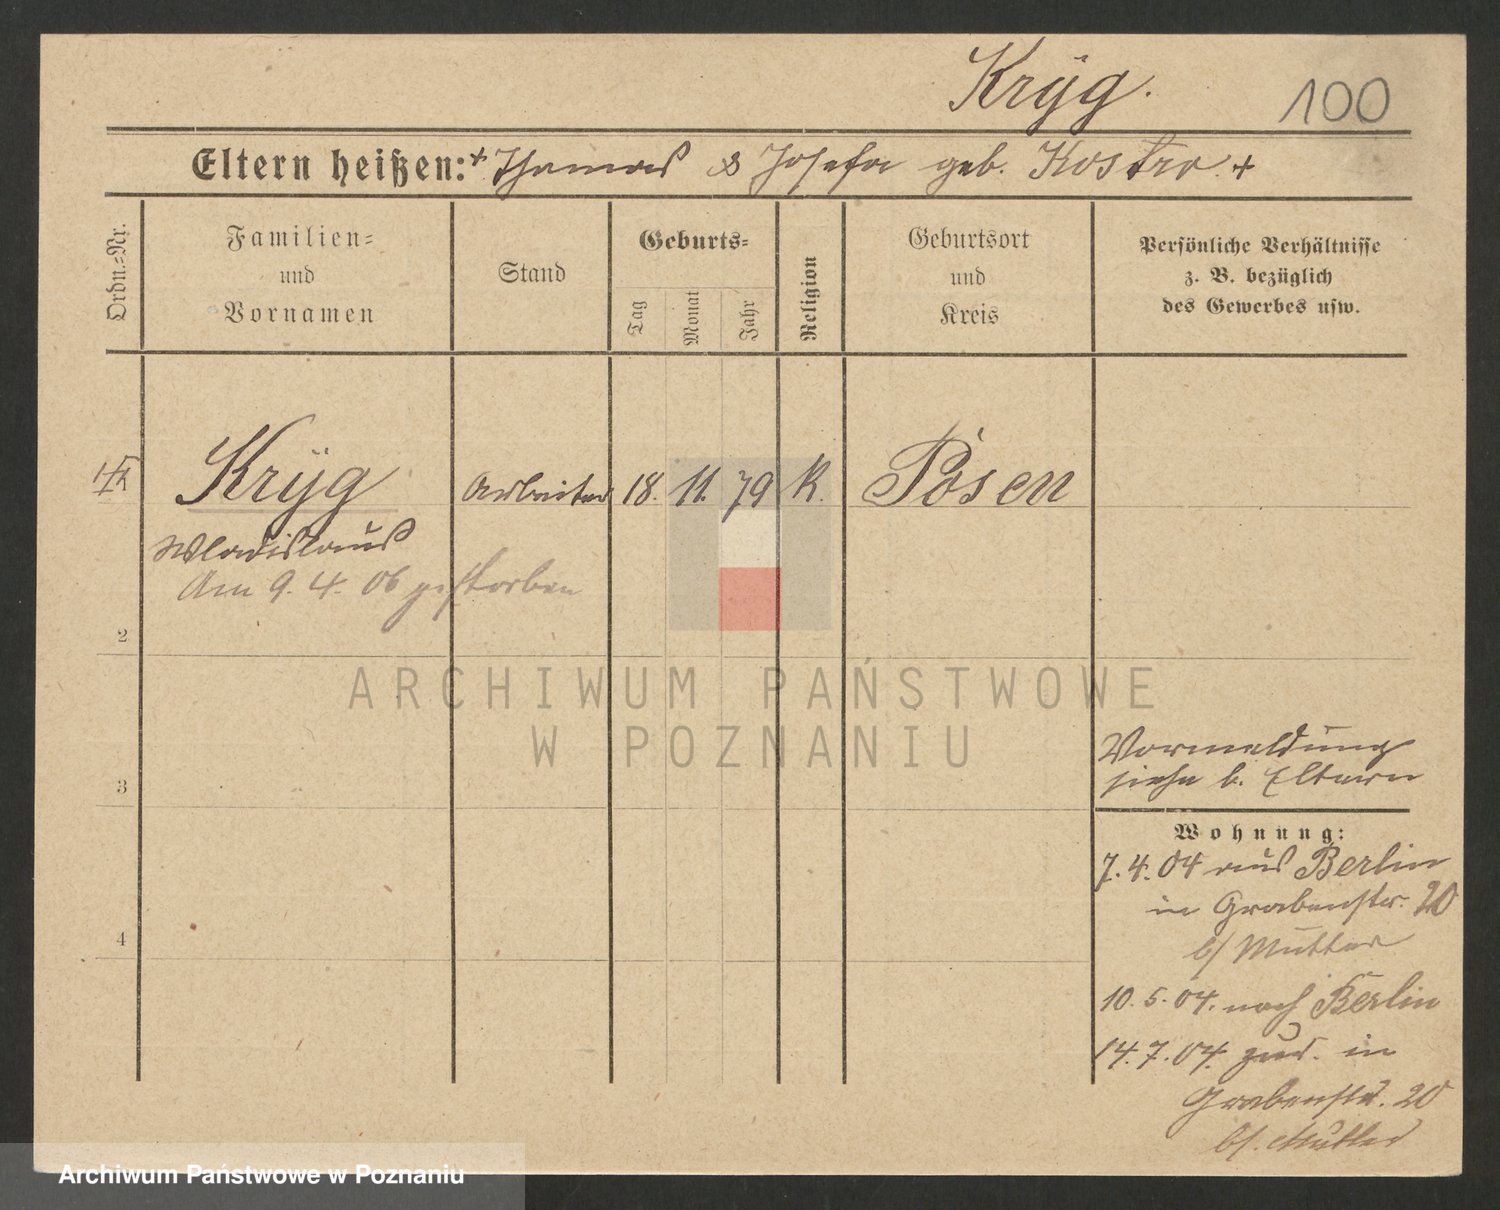 Krÿg.
100
Eltern heißen: + Thomas & Josefa geb. Kostro +
Ordn.-Nr.
Familien-
und
Vornamen
Stand
Geburts-
Tag
Monat
Jahr
Religion
Geburtsort
und
Kreis
Persönliche Verhältnisse
z. B. bezüglich
des Gewerbes usw.
Krÿg Arbeiter 18. 11. 79 K. Posen
Wladislaus
Am 9. 4. 06 gestorben
2
ARCHIWUM PAŃSTWOWE
W POZNANIU
3
Vormeldung
siehe b. Eltern
Wohnung:
7. 4. 04 aus Berlin
in Grabenstr. 20
b/ Mutter
4
10. 5. 04. nach Berlin
14. 7. 04. zur. in
Grabenstr. 20
b/. Mutter
Archiwum Państwowe w Poznaniu